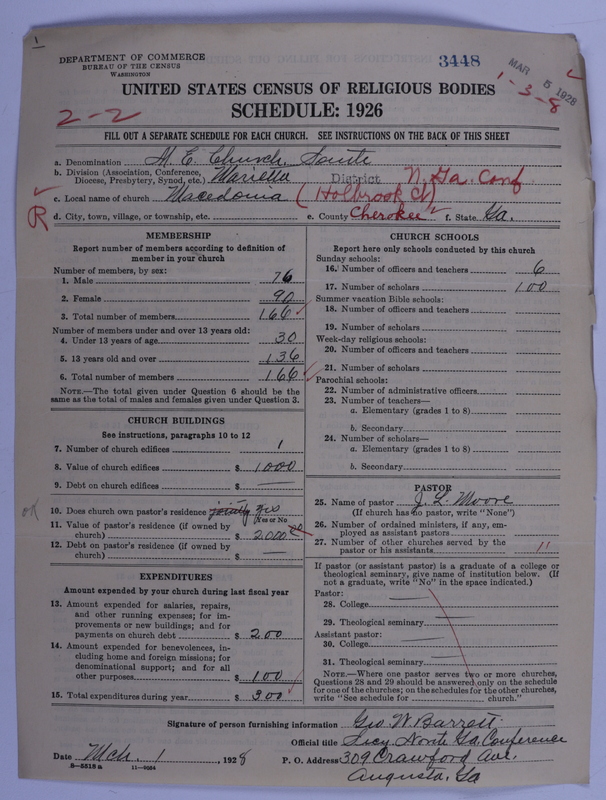 1
DEPARTMENT OF COMMERCE
BUREAU OF THE CENSUS
WASHINGTON
3448
MAR 5 1928
1-3-8
UNITED STATES CENSUS OF RELIGIOUS BODIES
2-2
SCHEDULE: 1926
FILL OUT A SEPARATE SCHEDULE FOR EACH CHURCH. SEE INSTRUCTIONS ON THE BACK OF THIS SHEET
a. Denomination M. E. Church, South
b. Division (Association, Conference, Diocese, Presbytery, Synod, etc.) Marietta District N. Ga. Conf
c. Local name of church Macedonia (Holbrook Ch)
R
d. City, town, village, or township, etc. e. County Cherokee f. State Ga.
MEMBERSHIP
Report number of members according to definition of
member in your church
Number of members, by sex:
1. Male 76
2. Female 90
3. Total number of members 166
Number of members under and over 13 years old:
4. Under 13 years of age 30
5. 13 years old and over 136
6. Total number of members 166
NOTE.—The total given under Question 6 should be the
same as the total of males and females given under Question 3.
CHURCH BUILDINGS
See instructions, paragraphs 10 to 12
7. Number of church edifices 1
8. Value of church edifices $ 1000
9. Debt on church edifices $ —
OK
10. Does church own pastor's residence jointly yes
(Yes or No)
11. Value of pastor's residence (if owned by
church) $ 2000 00
12. Debt on pastor's residence (if owned by
church) $ —
EXPENDITURES
Amount expended by your church during last fiscal year
13. Amount expended for salaries, repairs,
and other running expenses; for im-
provements or new buildings; and for
payments on church debt $ 200
14. Amount expended for benevolences, in-
cluding home and foreign missions; for
denominational support; and for all
other purposes $ 100
15. Total expenditures during year $ 300
CHURCH SCHOOLS
Report here only schools conducted by this church
Sunday schools:
16. Number of officers and teachers 6
17. Number of scholars 100
Summer vacation Bible schools:
18. Number of officers and teachers
19. Number of scholars
Week-day religious schools:
20. Number of officers and teachers
21. Number of scholars
Parochial schools:
22. Number of administrative officers
23. Number of teachers—
a. Elementary (grades 1 to 8)
b. Secondary
24. Number of scholars—
a. Elementary (grades 1 to 8)
b. Secondary
PASTOR
25. Name of pastor J. L. Moore
(If church has no pastor, write "None")
26. Number of ordained ministers, if any, em-
ployed as assistant pastors
27. Number of other churches served by the
pastor or his assistants 11
If pastor (or assistant pastor) is a graduate of a college or
theological seminary, give name of institution below. (If
not a graduate, write "No" in the space indicated.)
Pastor:
28. College
29. Theological seminary
Assistant pastor:
30. College
31. Theological seminary
NOTE.—Where one pastor serves two or more churches,
Questions 28 and 29 should be answered only on the schedule
for one of the churches; on the schedules for the other churches,
write "See schedule for church."
Signature of person furnishing information Geo. W. Barrett
Official title Secy North Ga. Conference
Date Mch. 1, 1928 P. O. Address 309 Crawford Ave.
8-5518a 11-9664
Augusta, Ga